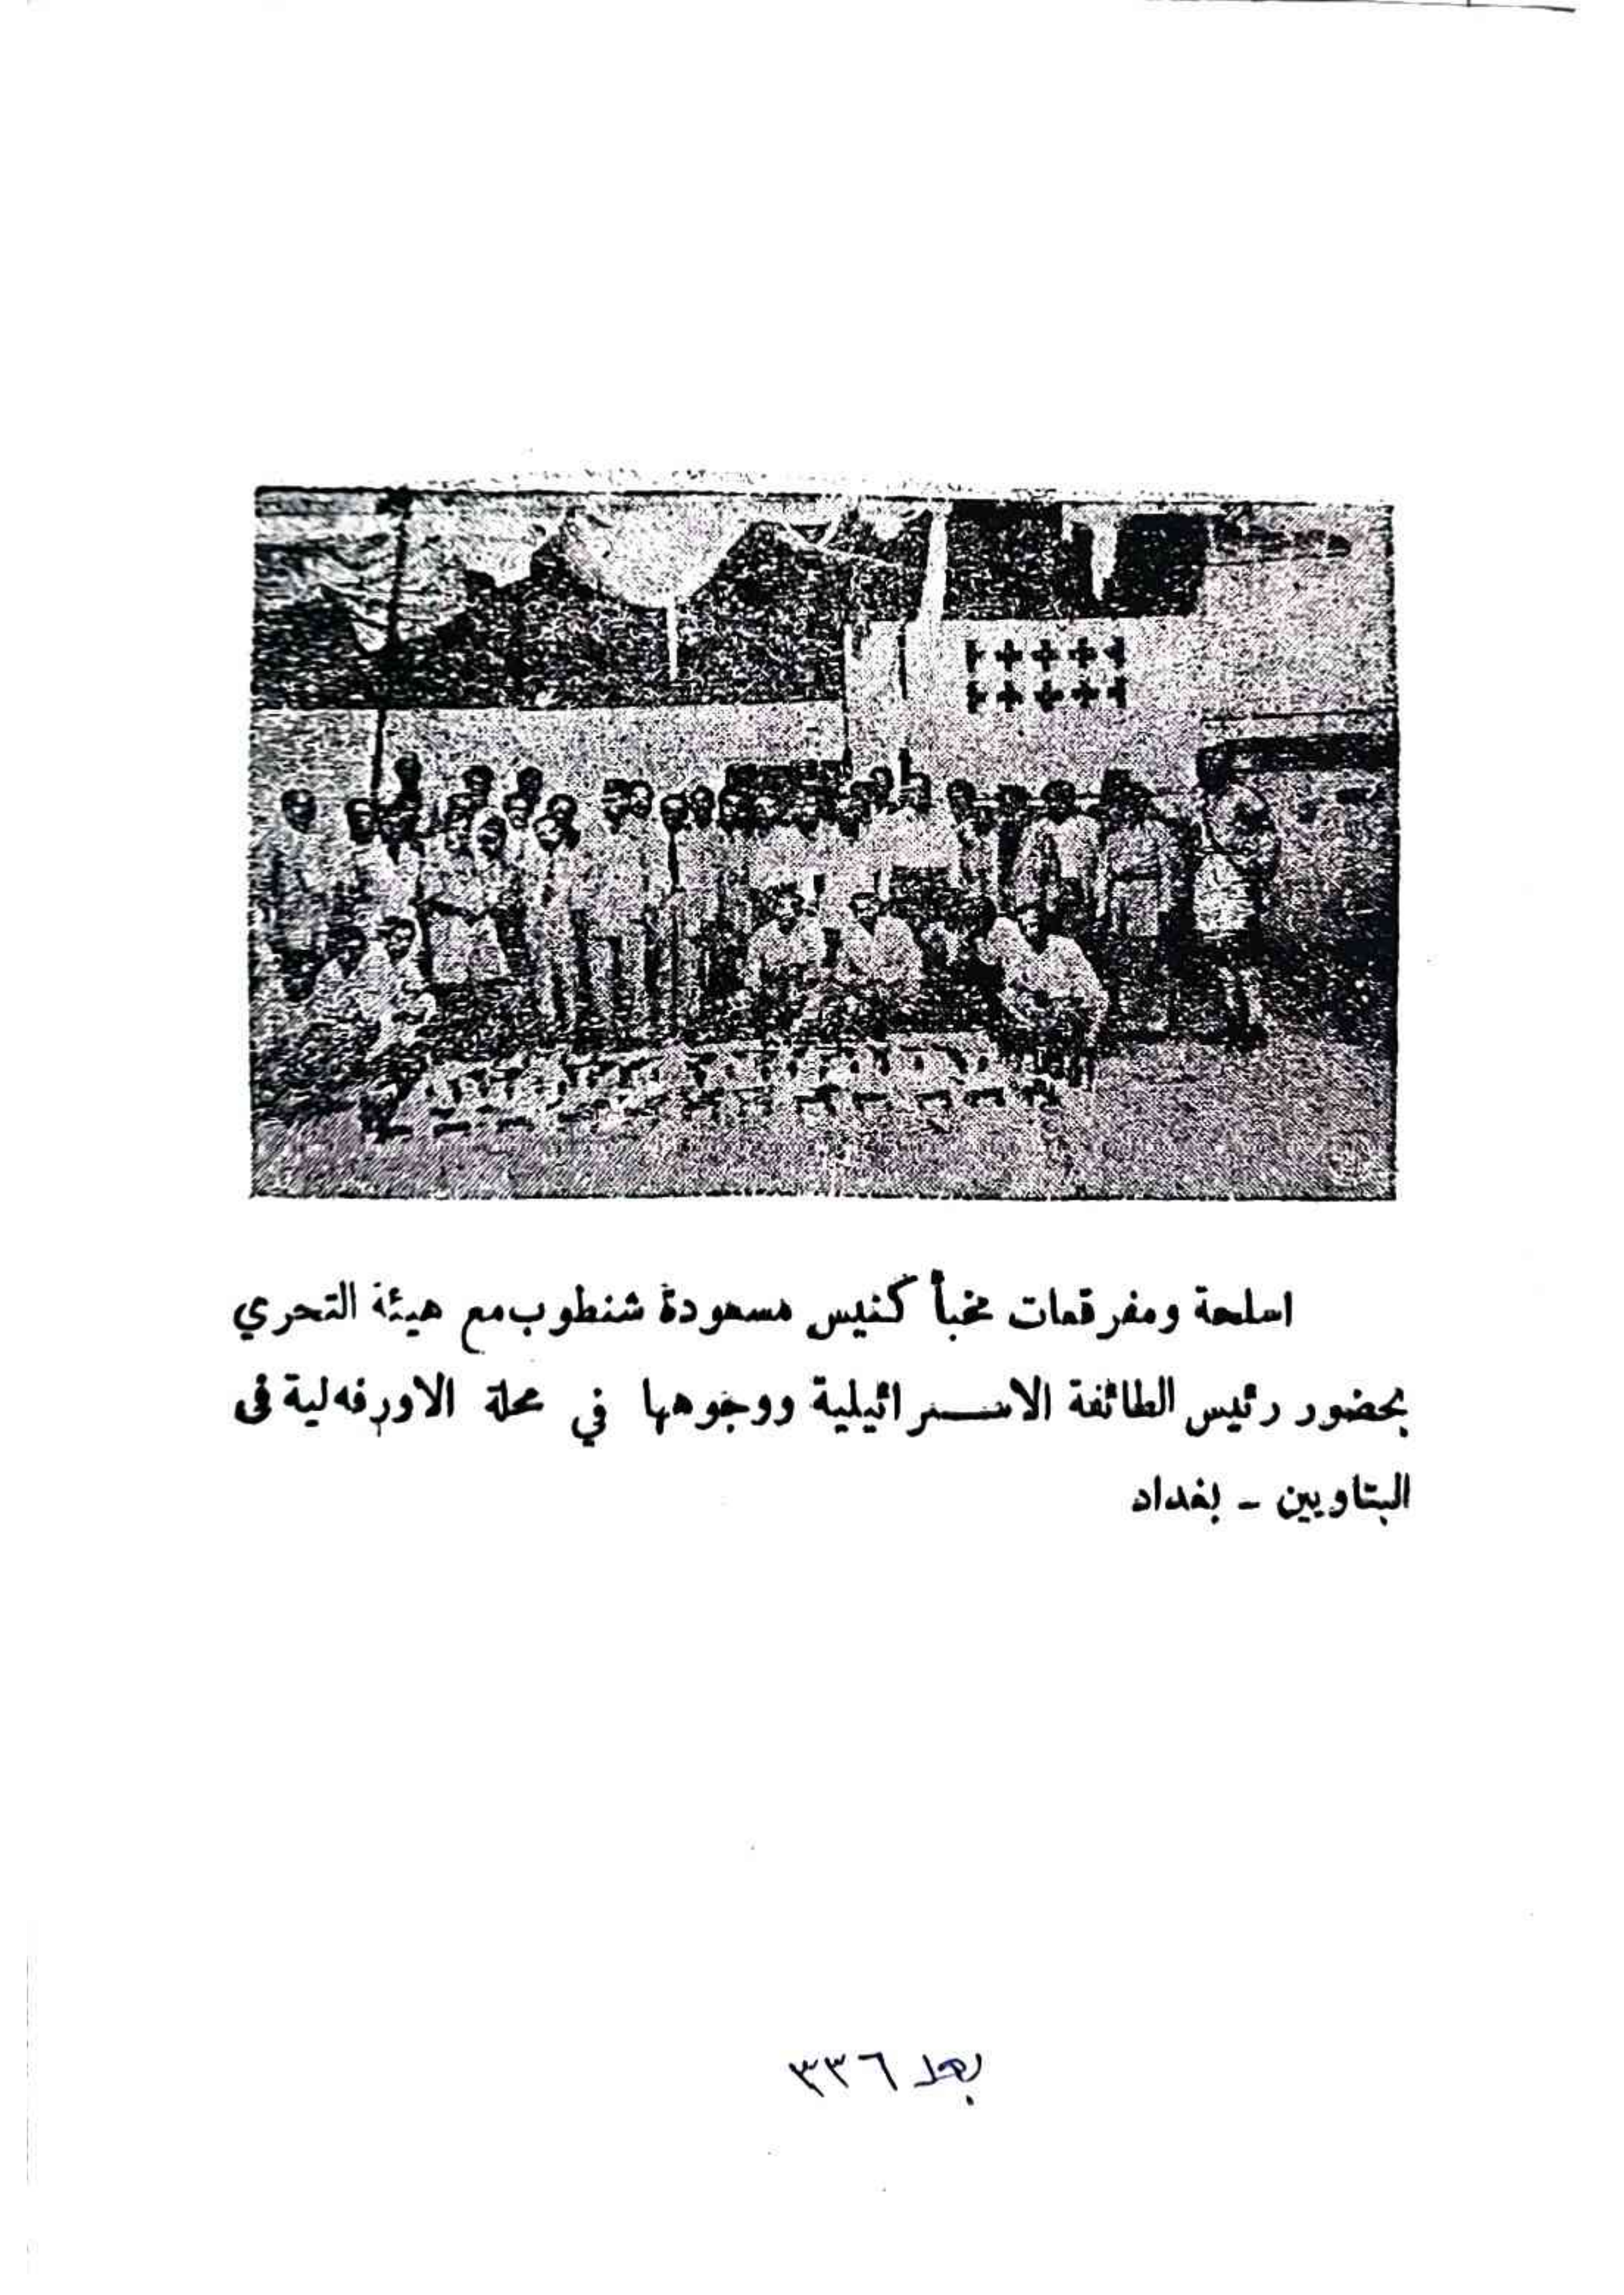 اسلحة ومفرقعات مخبأ كنيس مسعودة شنطوب مع هيئة التحري
بحضور رئيس الطائفة الاسـرائيلية ووجوهها في محلة الاورفه‌لية فى
البتاويين - بغداد
بعد ٣٣٦